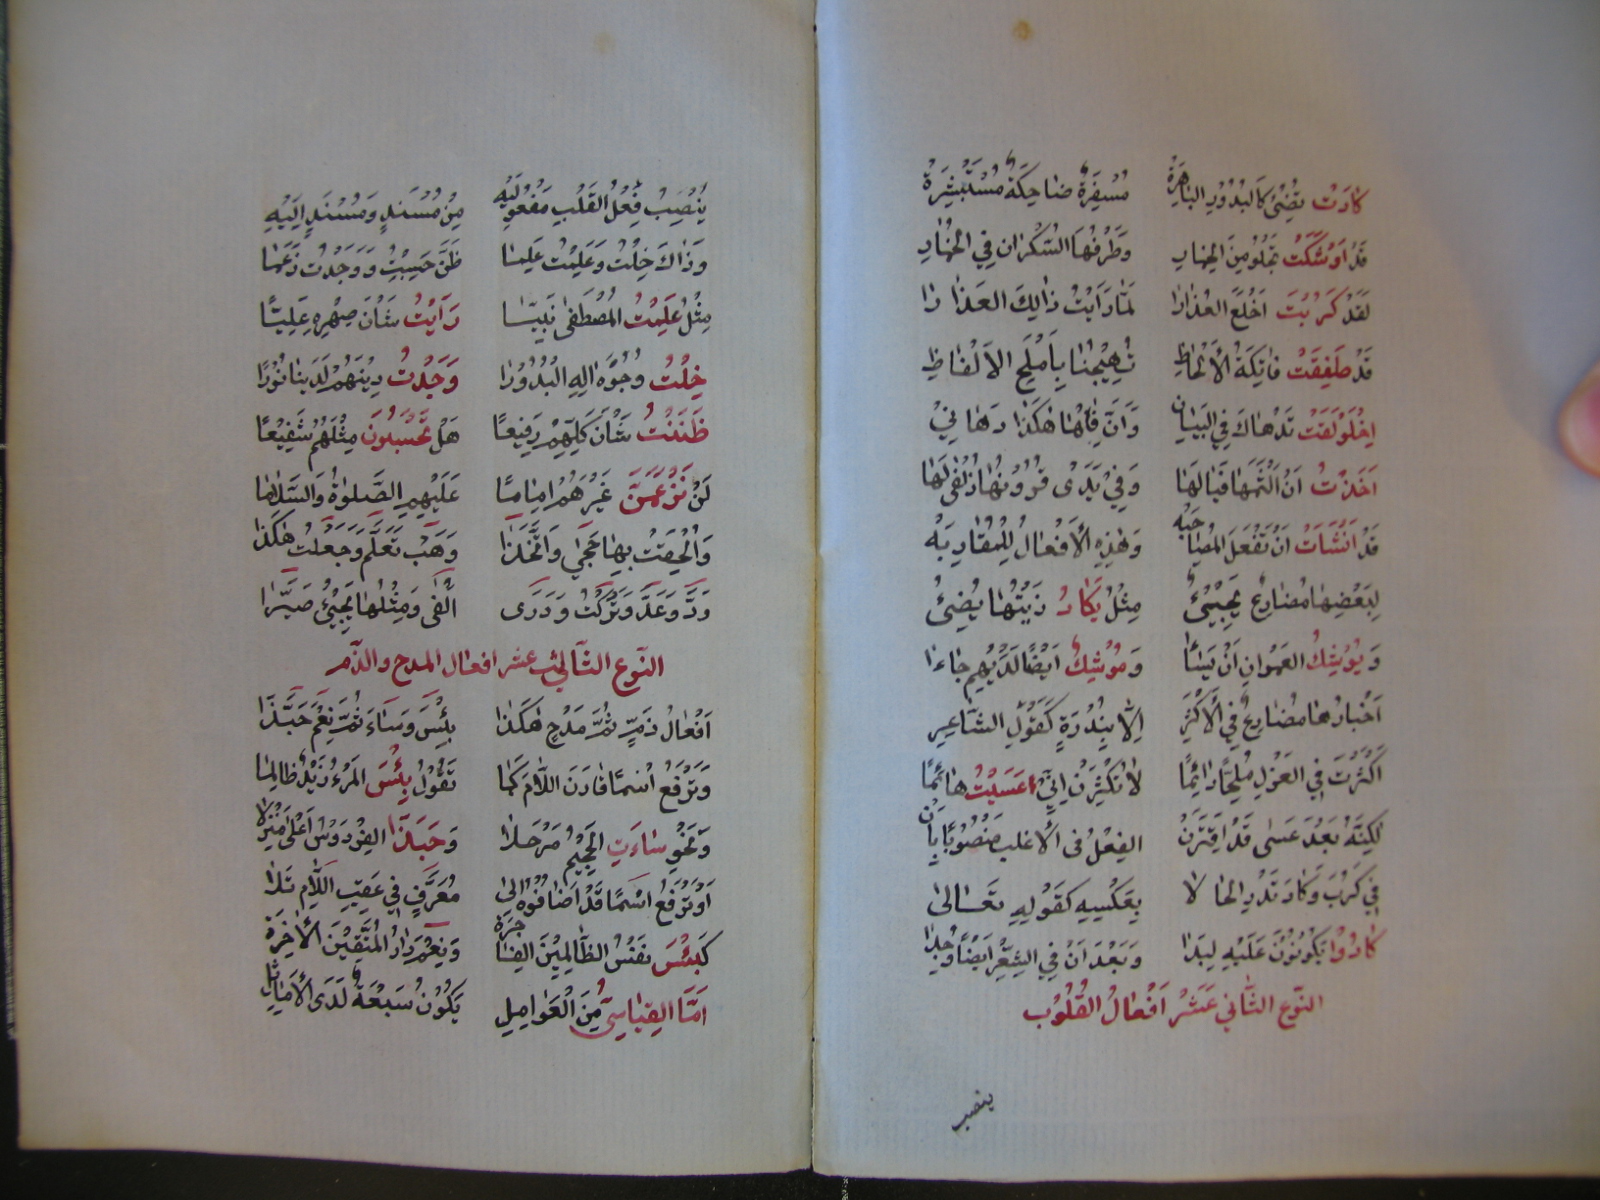 كَادَتْ تُضِئُ كَالبُدُورِ البَاهِرَةُ مُسْفِرَةٌ ضَاحِكَةٌ مُسْتَبْشِرَةٌ
قَدْ اَوْشَكَتْ تَمْلُو مِنَ وَطَرْفُهَا السَّكْرَانِ فِي
لَقَدْ كَرُبْتَ اَخْلَعُ العِذَارَا لَمَّا رَاَيْتُ ذَالِكَ العَذَارَا
قَدْ طَفِقَتْ فَاتِكَةُ الْاَلْحَاظِ تُهِيْجُنَا بِاَمْلَحِ الاَلْفَاظِ
اِخْلَوْلَقَتْ تَدْهَاكَ فِي البَيَانِ هٰكَذَا دَهَانِيْ
اَخَذْتُ اَنْ اَلْثَمَهَا وَفِيْ يَدَىْ
قَدْ اَنْشَاَتْ اَنْ تَفْعَلَ المُصَاحَبَهْ وَهٰذِهِ الْاَفْعَالُ لِلْمُقَارَبَهْ
لِبَعْضِهَا مُضَارِعٌ يَجِيْئُ مِثْلُ يَكَادُ زَيْتُهَا يُضِئُ
وَيُوْشِكُ العَهْوَانِ اَنْ يَنْسَٔا وَمُوْشِكٌ اَيْضًا لَدَيْهِمْ جَاءَا
اَخْبَارُهَا مُضَارِعٌ فِي الْاَكْثَرِ اِلَّا بِنُدْرَةٍ كَقَوْلِ الشَّاعِرِ
اَكْثَرْتَ فِي العَزْلِ مُلِحًّا دَائِمًا لَا تُكْثِرَنْ اِنِّيْ عَسَيْتُ صَائِمًا
لٰكِنَّهُ بَعْدَ عَسٰى قَدْ اقْتَرَنْ الفِعْلُ فى الْاَغْلَبِ مَنْصُوْبًا بِاَنْ
فِي كَرُبَ وَكَادَ تَدْرِ الحَالَا بِعَكْسِهِ كَقَوْلِهِ تَعَالىٰ
كَادُوْا يَكُوْنُوْنَ عَلَيْهِ لِبَدَا وَبَعْدَ اَنْ فِي الشِّعْرِ اَيْضًا وُجِدَا
النّوع الثّاني عَشَرُ اَفْعَالُ القُلُوْب
ينصب
يُنْصِبُ فِعْلُ القَلْبِ مَفْعُولَيْهِ مِنْ مُسْنَدٍ وَمُسْنَدٍ اِلَيْهِ
وَذَاكَ خِلْتُ وَعَلِمْتُ عَلِمَا ظَنَّ حَسِبْتُ وَوَجَدْتُ زَعَمَا
مِثْلُ عَلِمْتُ المُصْطَفٰى نَبِيًّا رَاَيْتُ شَانَ صِهْرِهِ عَلِيًّا
خِلْتُ وُجُوْهَ الِهِ البُدُوْرَا وَجَدْتُ دِيْنَهُمْ لَدَيْنَا نُوْرًا
ظَنَنْتُ شَاْنَ كُلِّهِمْ رَفِيْعًا هَلْ تَحْسَبُوْنَ مِثْلَهُمْ شَفِيْعًا
لَنْ نَزْعُمَنَّ غَيْرَهُمْ اِمَامًا عَلَيْهِمِ الصَّلٰوةُ وَالسَّلَامَا
وَالْحَقَتْ بِهَا حَجٰى وَاتَّخَذَا وَهَبْ تَعَلَّمْ وَجَعَلْتُ هٰكَذَا
وَدَّ وَعَدَّ وَتَرَكْتُ وَدَرَى اَلْفَى وَمِثْلُهَا يَجِيْئُ صَيَّرَا
النّوع الثّالث عشر افعال المدح والذّم
اَفْعَالُ ذَمٍّ ثُمَّ مَدْحٍ هٰكَذَا بِئْسَ وَسَاءَ ثُمَّ نِعْمَ حَبَّذَا
وَتَرْفَعُ اسْمًا قَارَنَ اللَّامَ كَمَا تَقُوْلُ بِئْسَ المَرْءُ زَيْدٌ ظَالِمًا
وَنَحْوُ سَاءَتِ الجَحِيْمُ مَرْحَلَا وَحَبَّذَا الفِرْدَوْسُ اَعْلٰى مَنْزِلَا
اَوْ تَرْفَعُ اسْمًا قَدْ اَضَافُوْهُ اِلٰى مُعَرَّفٍ فِي عَقِبِ اللَّامِ تَلَا
كَبِئْسَ نَفْسُ الظَّالِمِيْنَ الفَاجِرَةْ وَنِعْمَ دَارُ المُتَّقِيْنَ الْاٰخِرَةْ
اَمَّا القِيَاسِىُّ مِنَ الْعَوَامِلِ يَكُوْنُ سَبْعَةً لَدَى الْاَمَاثِلِ